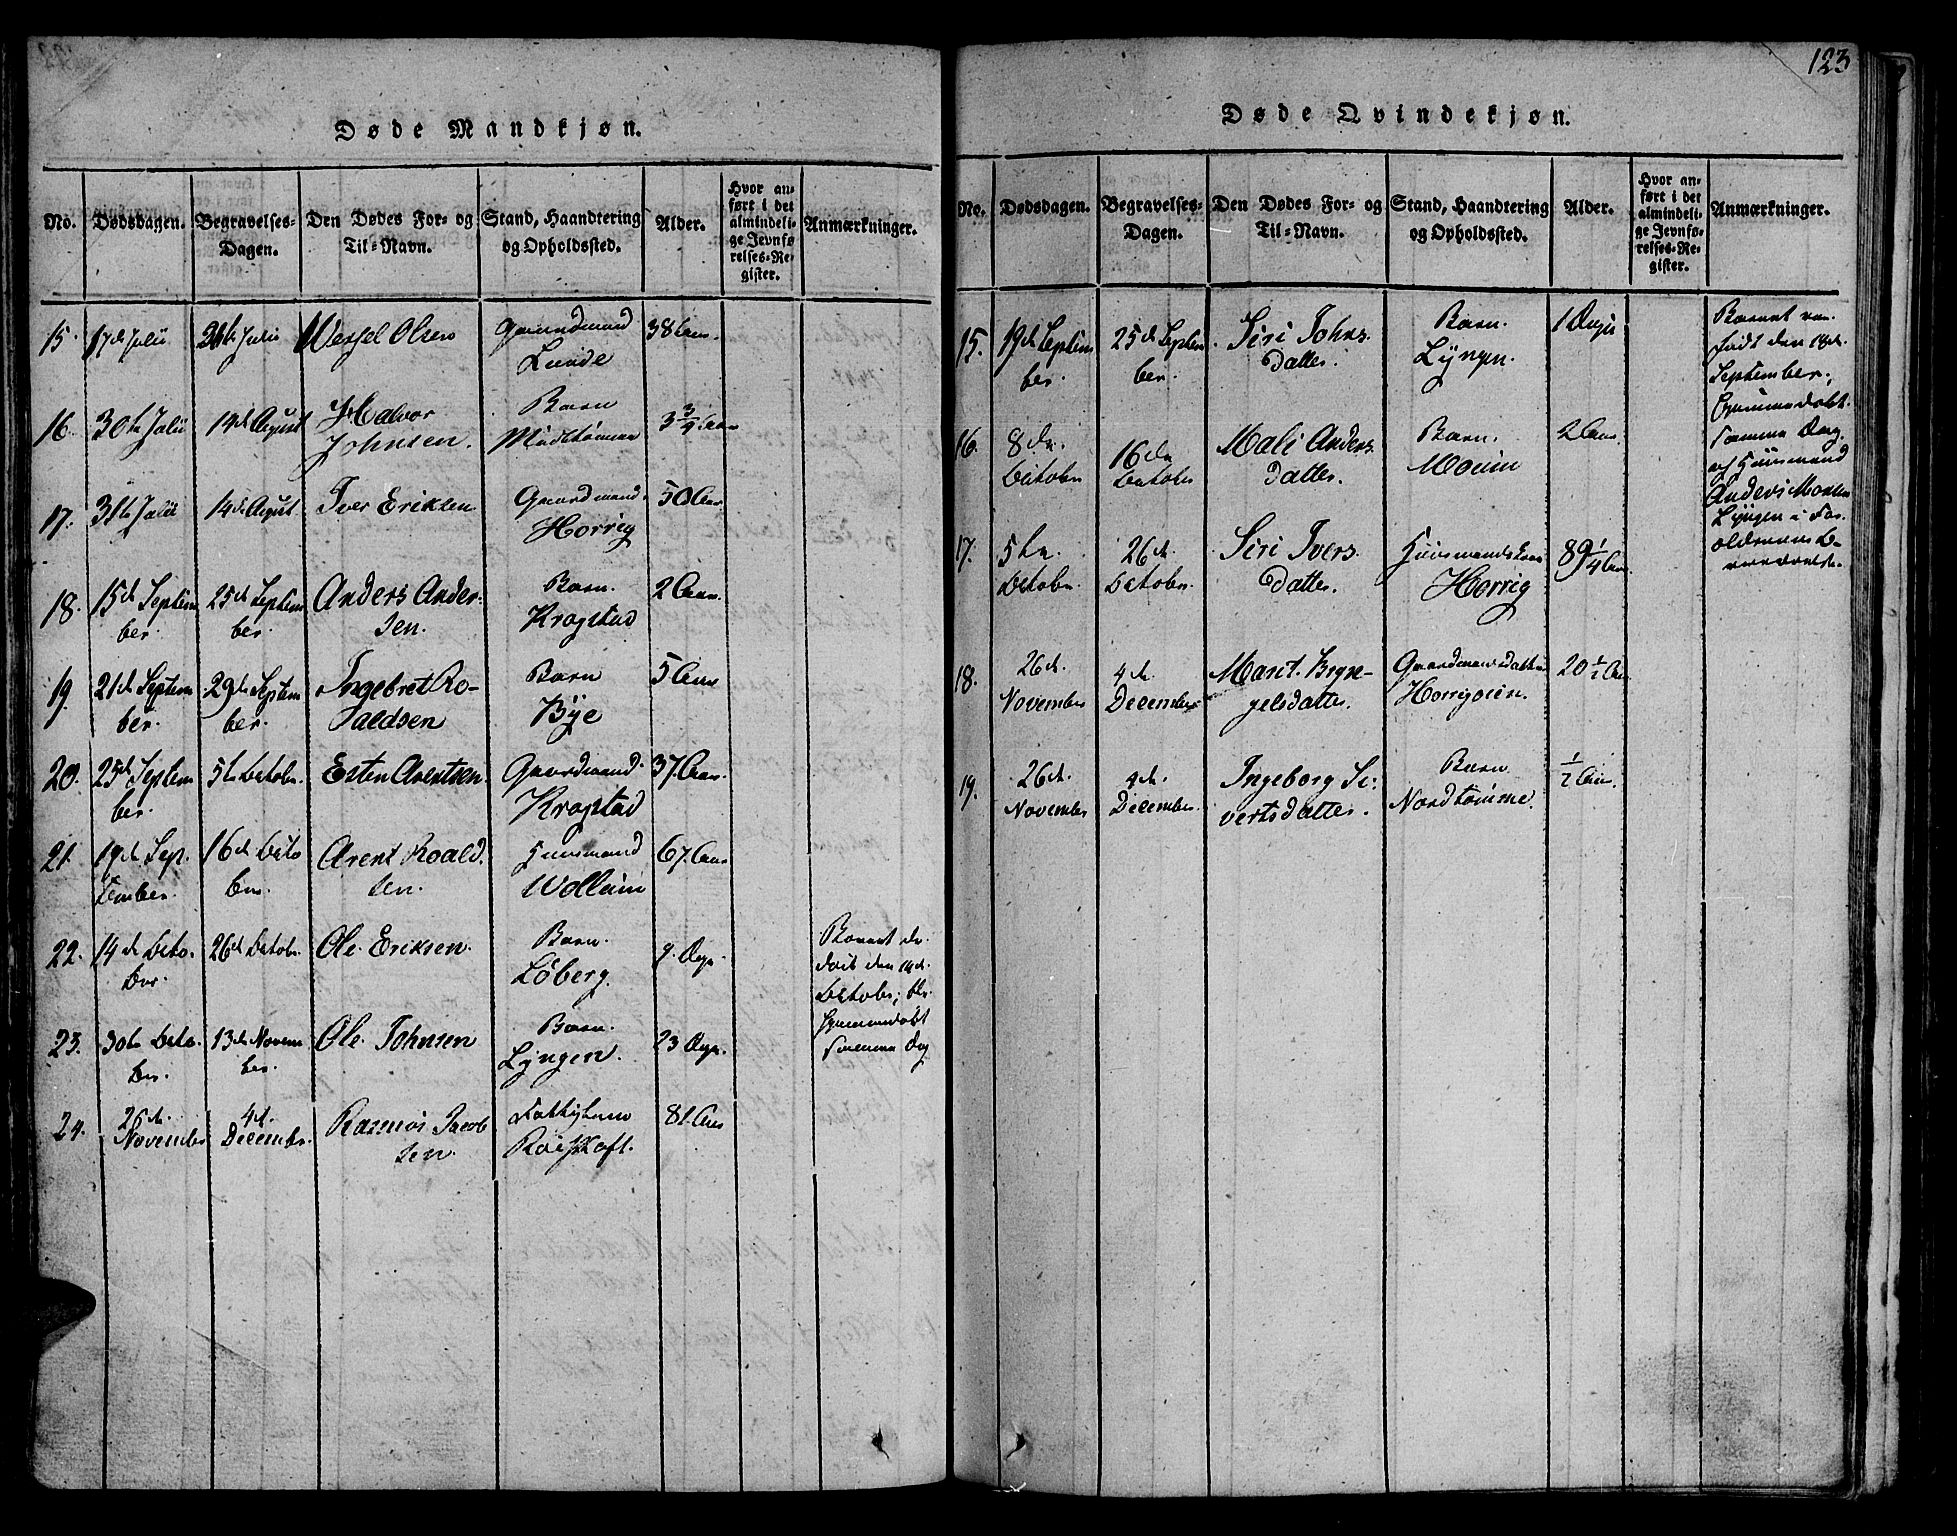 123
Døde Mandkjøn.
No. Dødsdagen. Begravelses-Dagen. Den Dødes For- og Til-Navn. Stand, Haandtering og Opholdssted. Alder. Hvor anført i det almindelige Jevnførelses-Register. Anmærkninger.
15. 17de Julii Julii Wessel Olsen Gaardmand Lunde 38 Aar.
16. 30te Julii 14de August Halvor Johnsen. Barn 3 3/4 Aar
17. 31te Julii 14de August Iver Eriksen Gaardmand Horrig 50 Aar
18. 15de September 25de September Anders Andersen. Barn. Kragstad 2 Aar.
19. 21de September 29de September Ingebret Roaldsen Barn Bye 5 Aar
20. 25de September 5te Octobr. Esten Arentsen. Gaardmand Kragstad 37 Aar.
21. 19de September 16de October Arent Roaldsen. Huusmand Wollum 67 Aar
22. 14de October 26de Octobr. Ole Eriksen. Barn. Löberg. 9. Dage
Barnet
den
Octobr;
hjemmedöbt
samme Dag
23. 30te October. 13de November. Ole Johnsen Barn. Lyngen. 23 Dage.
24. 26de November 4de December. Rasmus Jacobsen. Röeskaft. 81 Aar
Døde Qvindekjøn.
No. Dødsdagen. Begravelses-Dagen. Den Dødes For- og Til-Navn. Stand, Haandtering og Opholdssted. Alder. Hvor anført i det almindelige Jevnførelses-Register. Anmærkninger.
15. 19de September. 25de September. Siri Johnsdatter. Barn. Lyngen. 1 Dag
Barnet var
født den 18de
September;
hjemmedöbt
samme Dag
af Huusmand
Anders
Lyngen i For-
ældrenes
16. 8de October 16de October Mali Andersdatter. Barn. Moum 2 Aar
17. 5te October. 26de October. Siri Iversdatter. Horrig 89 1/4 Aar
18. 26de November 4de December Marit Bryngelsdatter. Gaardmandsdatter Horrigöien. 20 1/2 Aar
19. 26de November 4de December. Ingeborg Sivertsdatter. Barn Nordtömme. 1/2 Aar.